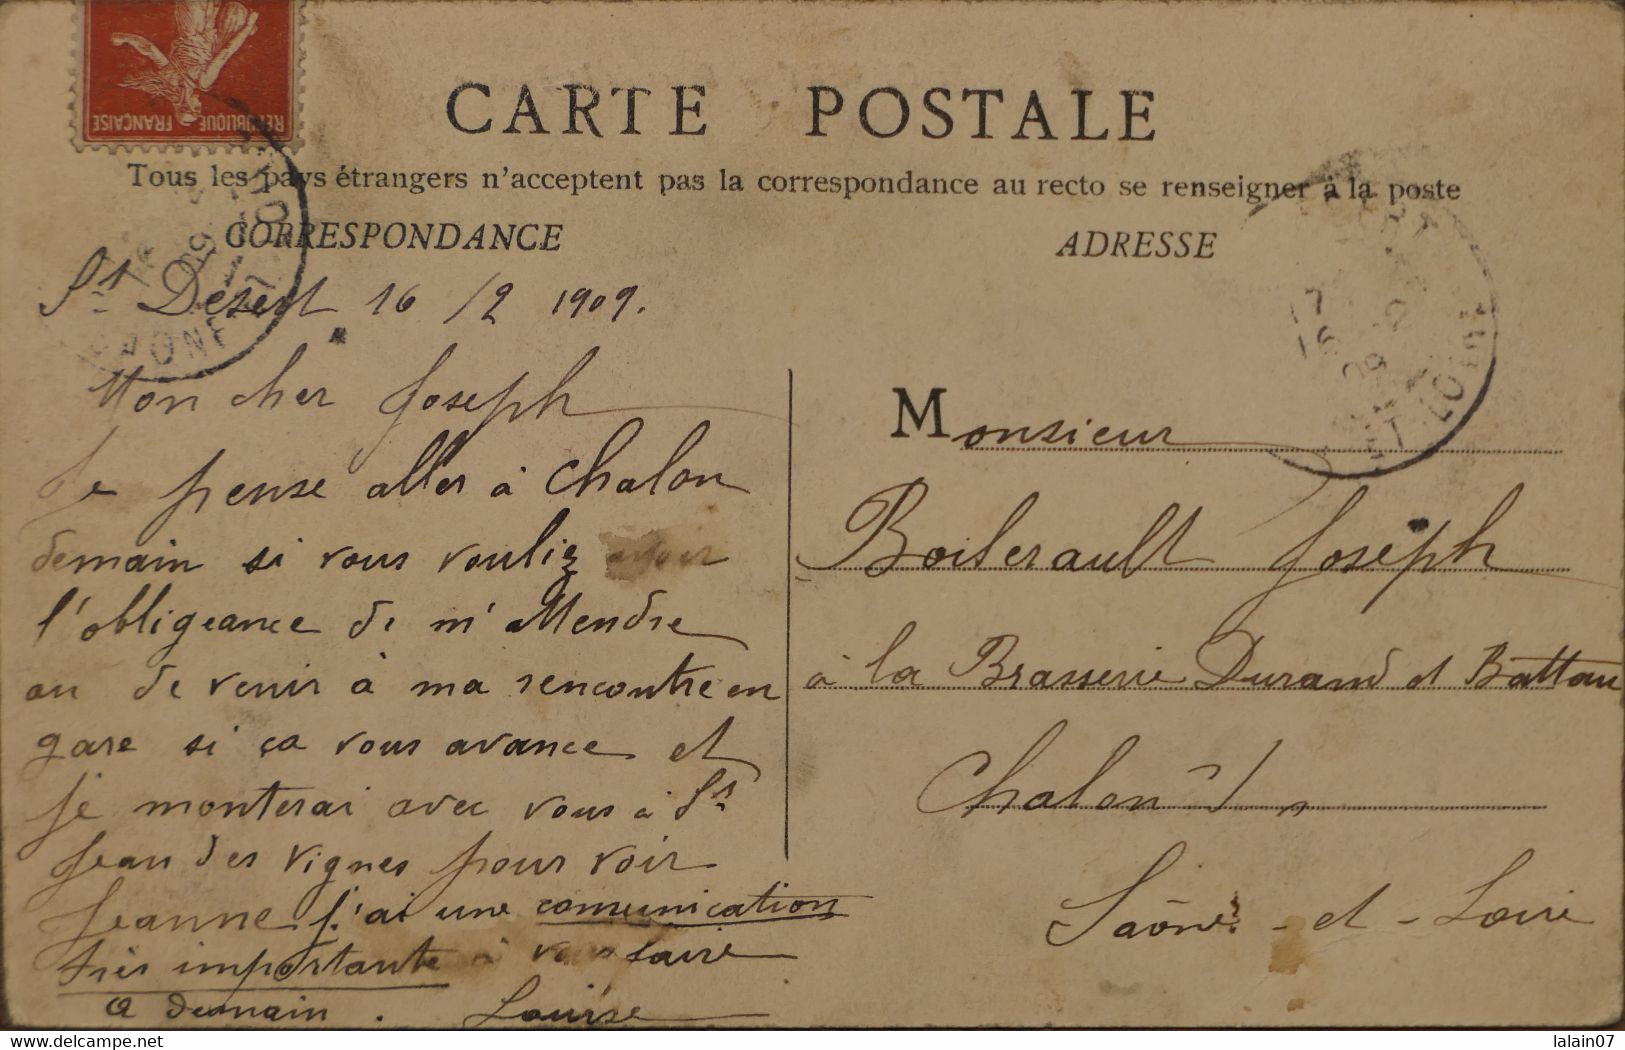 REPUBLIQUE FRANÇAISE
CARTE POSTALE
Tous les pays étrangers n'acceptent pas la correspondance au recto se renseigner à la poste
CORRESPONDANCE
St Desert 16 /2 1909.
Mon cher Joseph
Je pense aller à Chalon
demain si vous vouliz avoir
l'obligeance de m'attendre
ou de venir à ma rencontre en
gare si ça vous avance et
je monterai avec vous à St
Jean des vignes pour voir
Jeanne j'ai une comunication
très importante à vous faire
a demain. Louise
ADRESSE
17
16 -2
09
ET LOIRE
Monsieur
Boilerault Joseph
à la Brasserie Durand et Battau
Chalon s/
Saône-et-Loire
www.delcampe.net
lalain07